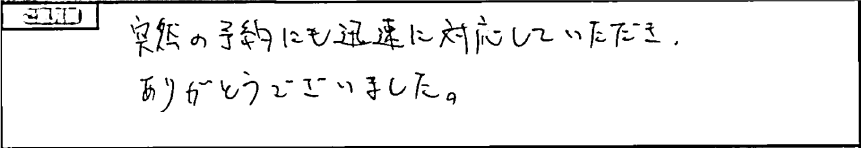 突然の予約にも迅速に対応していただき、
ありがとうございました。